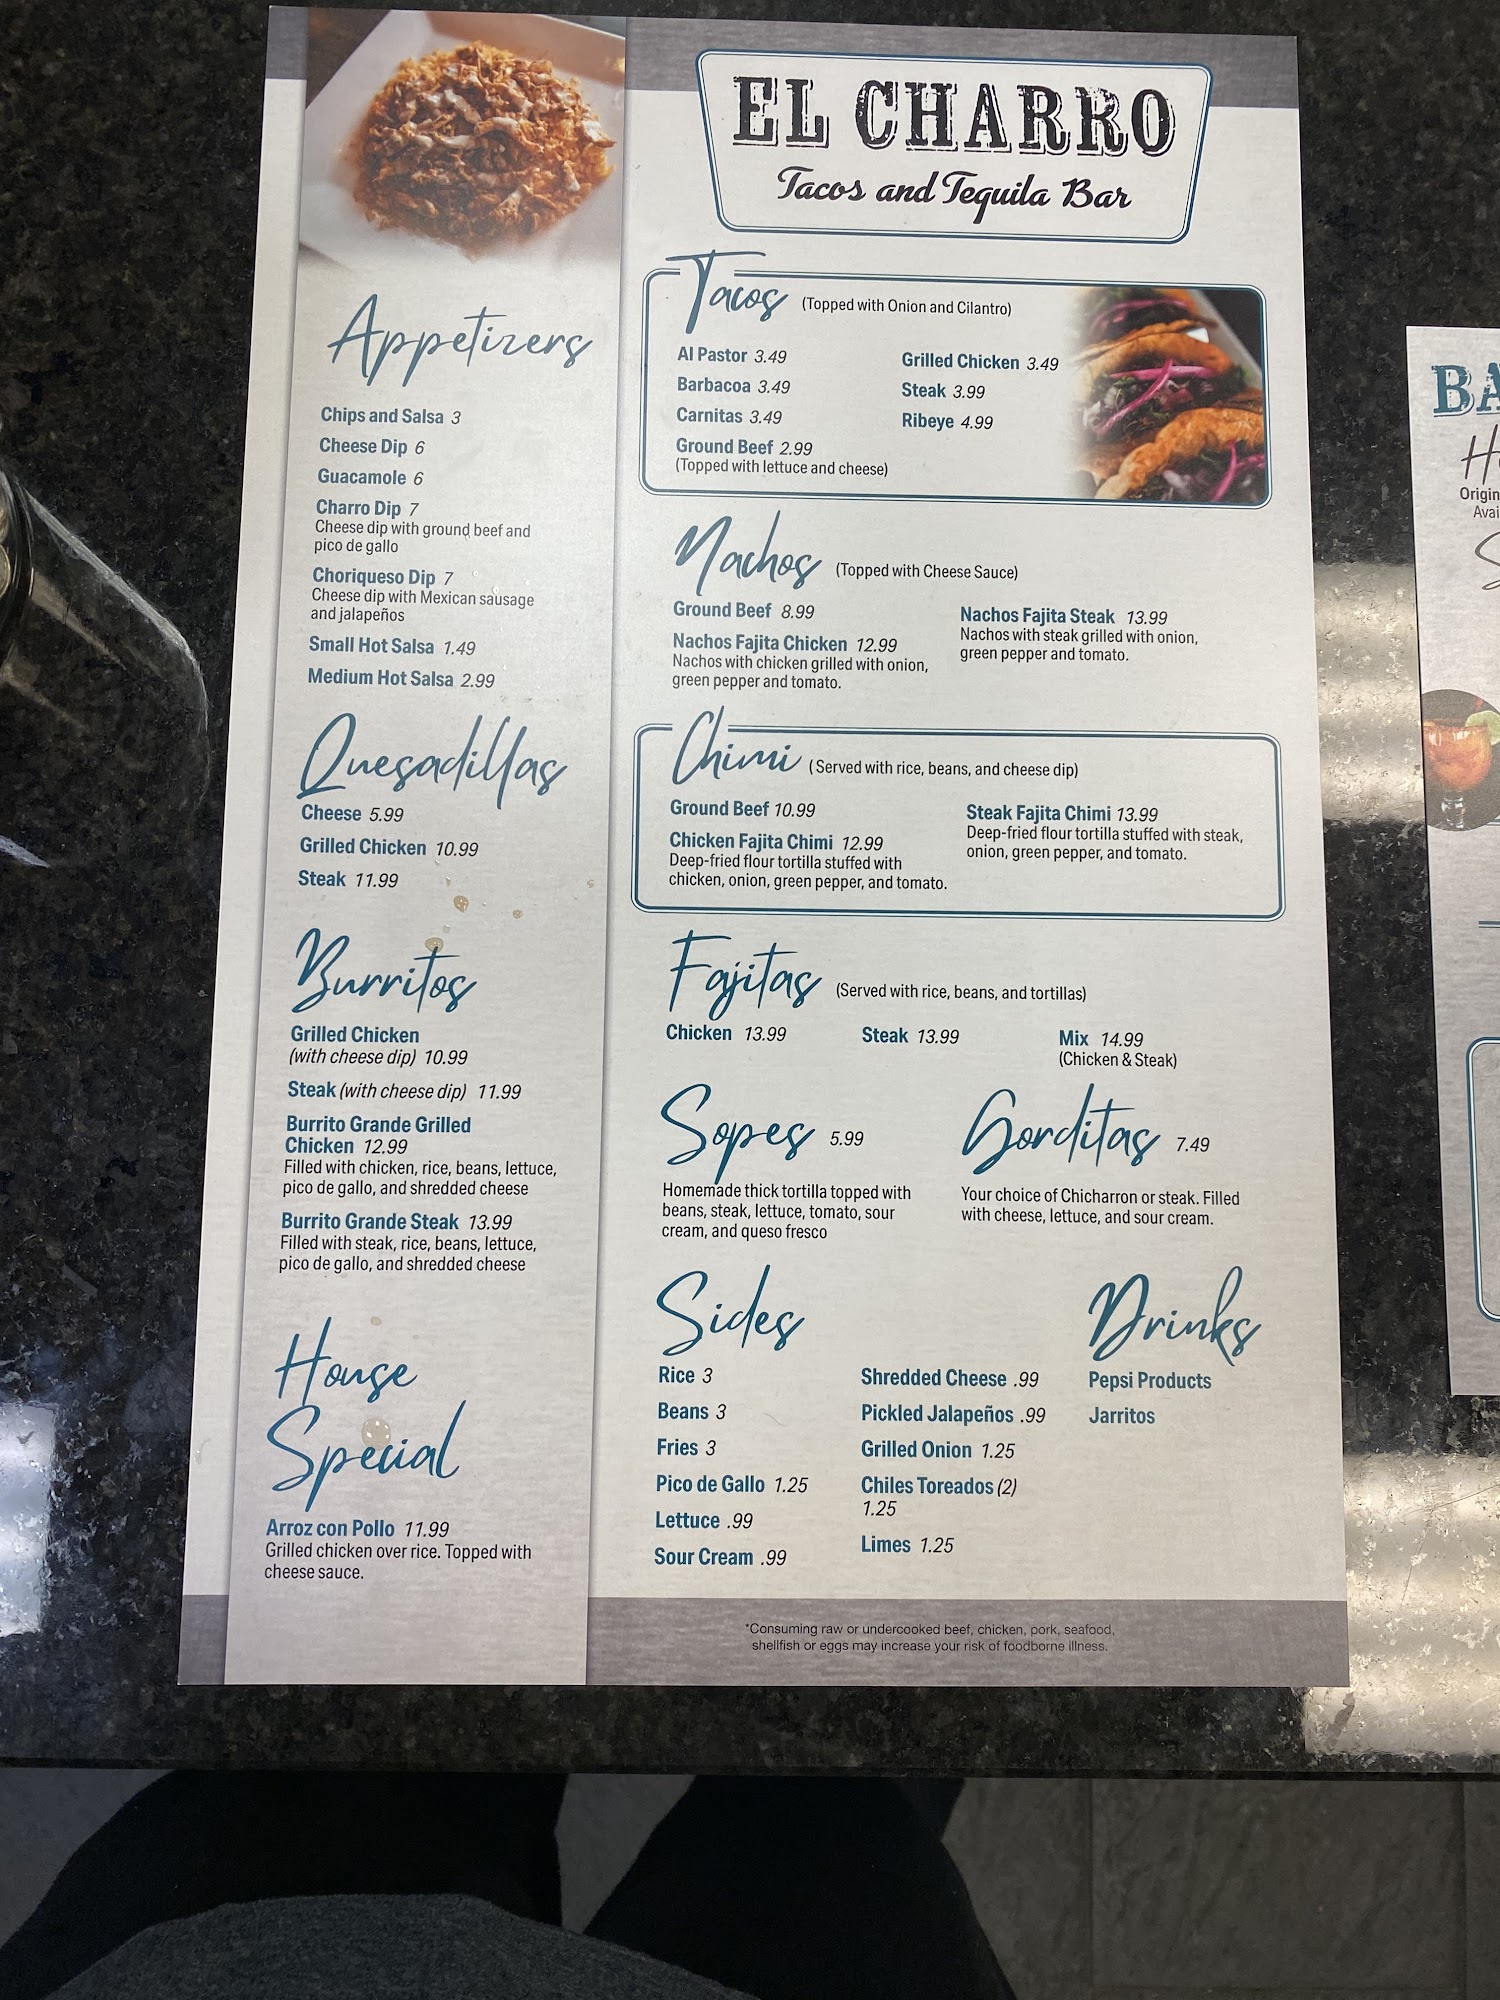 EL CHARRO
Tacos and Tequila Bar
Appetizers
Chips and Salsa 3
Cheese Dip 6
Guacamole 6
Charro Dip 7
Cheese dip with ground beef and
pico de gallo
Choriqueso Dip 7
Cheese dip with Mexican sausage
and jalapeños
Small Hot Salsa 1.49
Medium Hot Salsa 2.99
Quesadillas
Cheese 5.99
Grilled Chicken 10.99
Steak 11.99
Burritos
Grilled Chicken
(with cheese dip) 10.99
Steak (with cheese dip) 11.99
Burrito Grande Grilled
Chicken 12.99
Filled with chicken, rice, beans, lettuce,
pico de gallo, and shredded cheese
Burrito Grande Steak 13.99
Filled with steak, rice, beans, lettuce,
pico de gallo, and shredded cheese
House
Special
Arroz con Pollo 11.99
Grilled chicken over rice. Topped with
cheese sauce.
Tacos (Topped with Onion and Cilantro)
Al Pastor 3.49
Barbacoa 3.49
Carnitas 3.49
Ground Beef 2.99
(Topped with lettuce and cheese)
Grilled Chicken 3.49
Steak 3.99
Ribeye 4.99
Nachos (Topped with Cheese Sauce)
Ground Beef 8.99
Nachos Fajita Chicken 12.99
Nachos with chicken grilled with onion,
green pepper and tomato.
Nachos Fajita Steak 13.99
Nachos with steak grilled with onion,
green pepper and tomato.
Chimi (Served with rice, beans, and cheese dip)
Ground Beef 10.99
Chicken Fajita Chimi 12.99
Deep-fried flour tortilla stuffed with
chicken, onion, green pepper, and tomato.
Steak Fajita Chimi 13.99
Deep-fried flour tortilla stuffed with steak,
onion, green pepper, and tomato.
Fajitas (Served with rice, beans, and tortillas)
Chicken 13.99
Steak 13.99
Mix 14.99
(Chicken & Steak)
Sopes 5.99
Homemade thick tortilla topped with
beans, steak, lettuce, tomato, sour
cream, and queso fresco
Gorditas 7.49
Your choice of Chicharron or steak. Filled
with cheese, lettuce, and sour cream.
Sides
Rice 3
Beans 3
Fries 3
Pico de Gallo 1.25
Lettuce .99
Sour Cream .99
Shredded Cheese .99
Pickled Jalapeños .99
Grilled Onion 1.25
Chiles Toreados (2)
1.25
Limes 1.25
Drinks
Pepsi Products
Jarritos
*Consuming raw or undercooked beef, chicken, pork, seafood,
shellfish or eggs may increase your risk of foodborne illness.